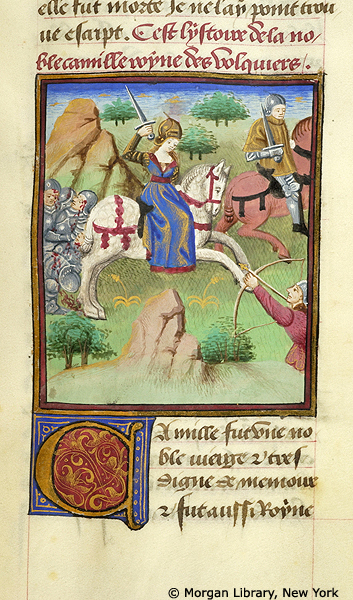 elle fut morte Je ne lay point trou
ue escript. Cest lystoire de la no
ble camille royne des volquiers /.
Camille fut vne no
ble vierge et tres
digne de memoire
et fut aussi Royne
© Morgan Library, New York